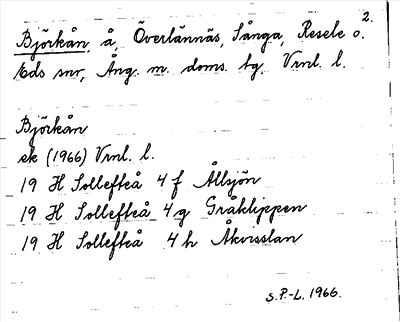 2.
Björkån, å, Överlännäs, Sånga, Resele o.
Eds snr, Ång. m. doms. tg, Vrnl. l.
Björkån
ek (1966) Vrnl. l.
19 H Sollefteå 4 f Ållsjön
19 H Sollefteå 4 g Gråklippen
19 H Sollefteå 4 h Åkvisslan
S.P.-L. 1966.